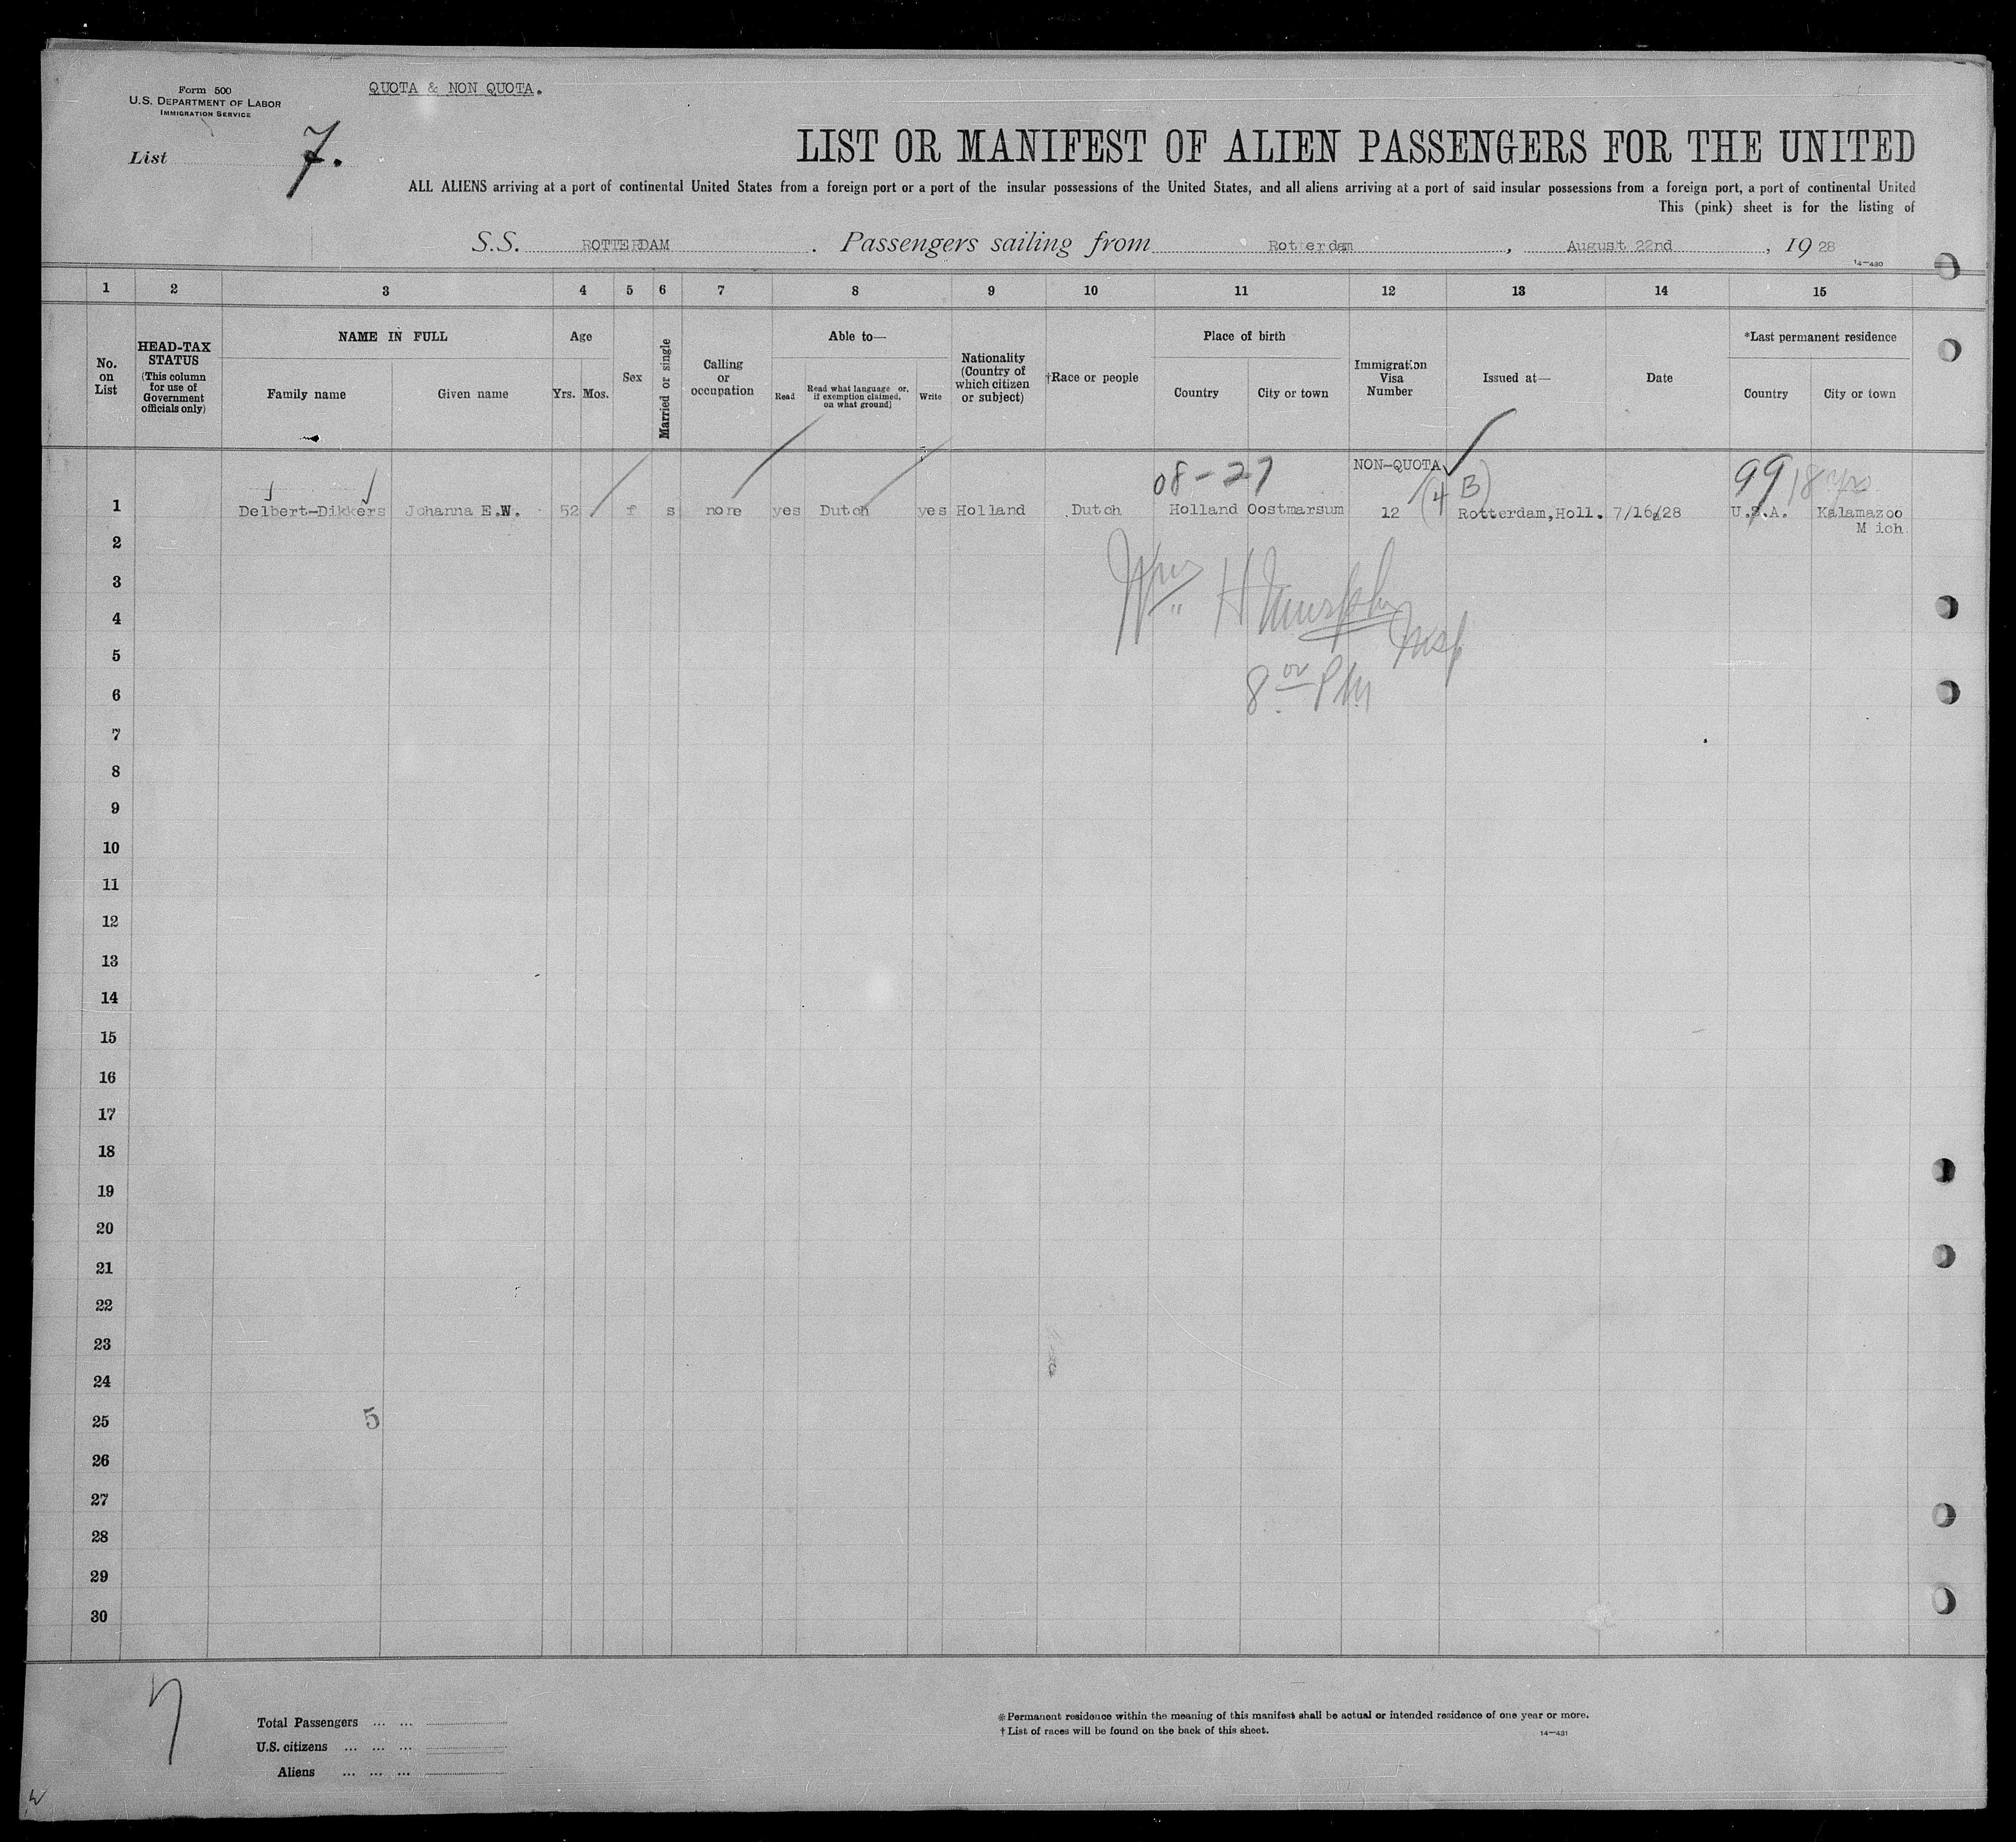 Form 500
U.S. DEPARTMENT OF LABOR
IMMIGRATION SERVICE
QUOTA & NON QUOTA.
List 7.
LIST OR MANIFEST OF ALIEN PASSENGERS FOR THE UNITED
ALL ALIENS arriving at a port of continental United States from a foreign port or a port of the insular possessions of the United States, and all aliens arriving at a port of said insular possessions from a foreign port, a port of continental United
This (pink) sheet is for the listing of
S.S. ROTTERDAM. Passengers sailing from Rotterdam, August 22nd, 1928
14-430
1 2 3 4 5 6 7 8 9 10 11 12 13 14 15
No. on List
HEAD-TAX STATUS
(This column for use of Government officials only)
NAME IN FULL
Family name Given name
Age
Yrs. Mos.
Sex
Married or single
Calling or occupation
Able to—
Read
Read what language or, if exemption claimed, on what ground
Write
Nationality (Country of which citizen or subject)
†Race or people
Place of birth
Country City or town
Immigration Visa Number
Issued at—
Date
*Last permanent residence
Country City or town
08-27 NON-QUOTA (4 B) 99 18 yrs
1 Delbert-Dikkers Johanna E.W. 52 f s none yes Dutch yes Holland Dutch Holland Oostmarsum 12 Rotterdam,Holl. 7/16/28 U.S.A. Kalamazoo
Mich
2
3
Wm H Murphy
4
Insp
5
6
8 00 PM
7
8
9
10
11
12
13
14
15
16
17
18
19
20
21
22
23
24
25
5
26
27
28
29
30
7
Total Passengers ... ...
U.S. citizens ... ... ...
Aliens ... ... ...
*Permanent residence within the meaning of this manifest shall be actual or intended residence of one year or more.
†List of races will be found on the back of this sheet.
14-431